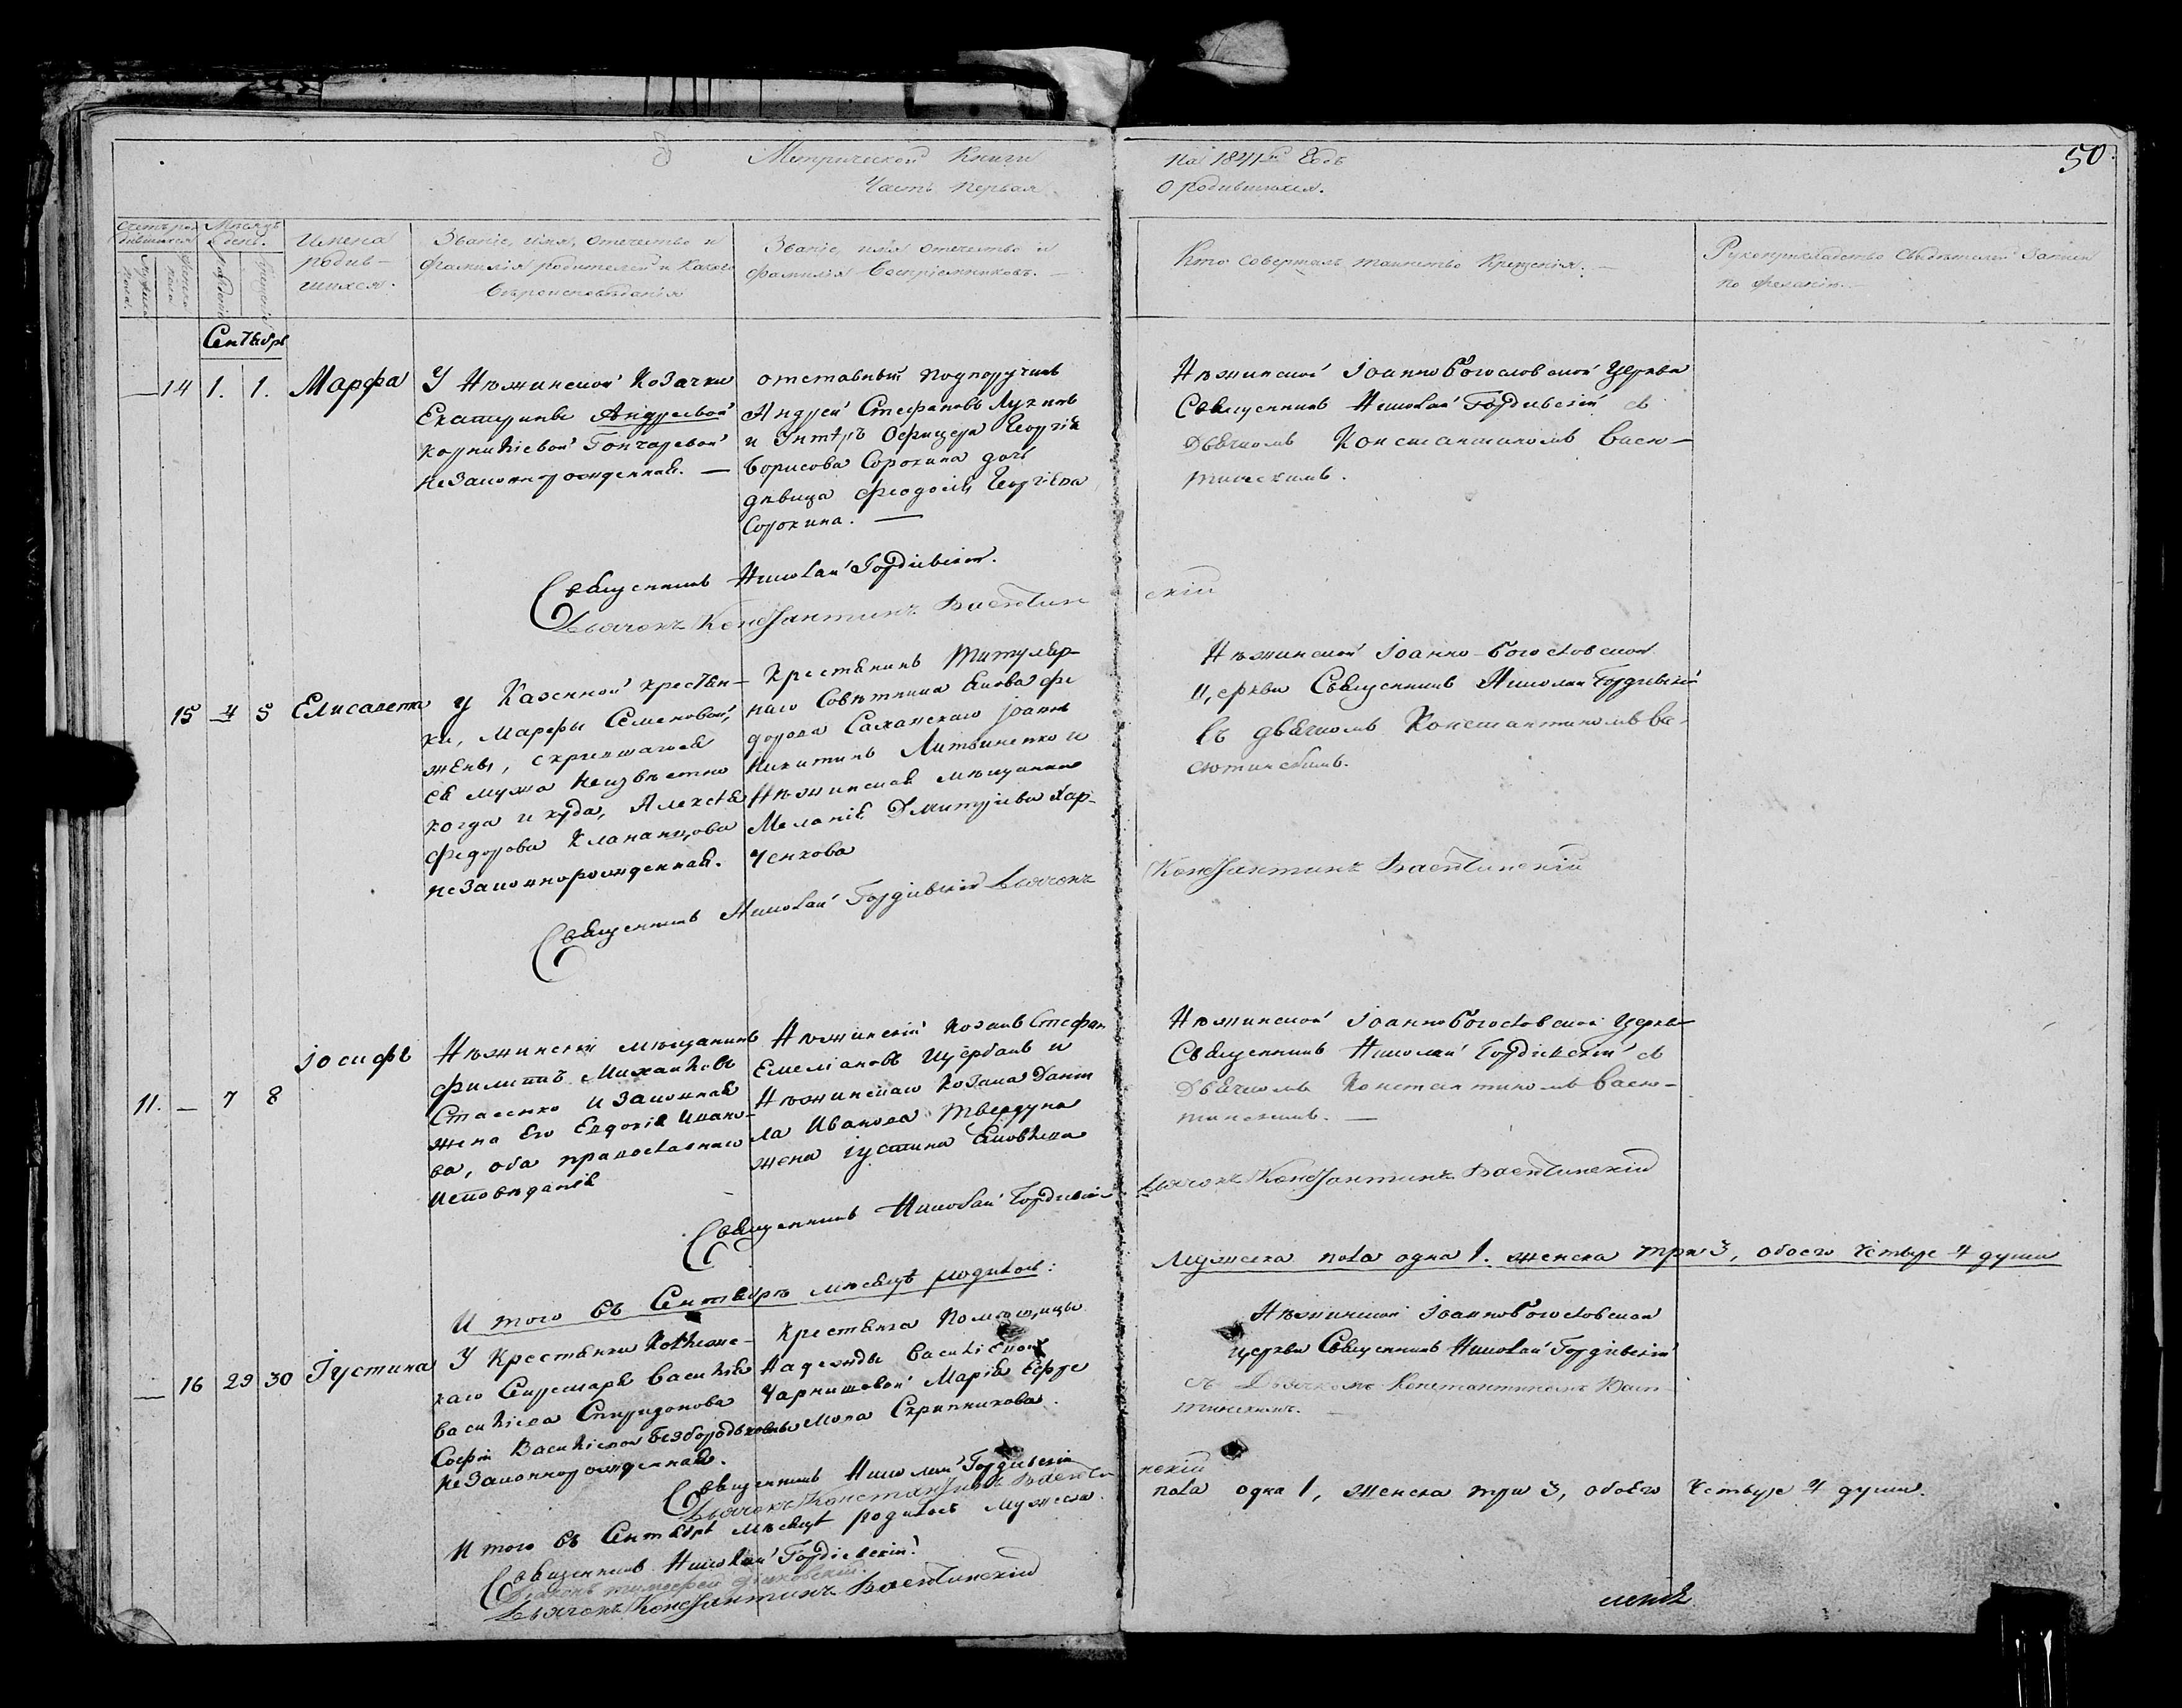 Метрической Книги
Часть первая
на 1841й Годъ
О родившихся.
50
Счетъ родившихся
Мѣсяцъ и день.
Мужеска пола.
Женска пола
рожденія
крещенія
Имена
родив-
шихся.
Званіе, имя, отечество и
фамилія родителей и какого
вѣроисповѣданія
Званіе, имя отечество и
фамилія Воспріемниковъ. —
Кто совершалъ таинство Крещенія. —
Рукоприкладство свидѣтелей записи
по желанію. —
Сентябрь
— 14 1. 1. Марфа
У Нѣжинской Козачки
Екатерины Андреевой
Корниліевой Гончаревой
незаконнорожденная. —
отставный подпоручикъ
Андрей Стефановъ
и Унтеръ Офицера Георгія
Борисова Сорокина дочь
дѣвица Феодосія Георгіева
Сорокина. —
Нѣжинской Іоанно Богословской Церкви
Священникъ Николай Гордіевскій съ
Дьячкомъ Константиномъ Васю-
тинскимъ.
Священникъ Николай Гордіевскій.
Дьячокъ Константинъ Васютин
скій
15 4 5 Елисавета
у Казенной крестьян-
ки, Марфы Семеновой,
жены, скрившагося
ея мужа неизвѣстно
когда и куда, Алексѣя
Федорова
незаконнорожденная.
Крестьянинъ Титуляр-
наго Совѣтника Якова Фе
дорова Саханскаго Іоаннъ
Никитинъ Литвиненко и
Нѣжинская мѣщанка
Меланія Дмитріева Хар-
ченкова
Нѣжинской Іоанно-Богословской
Церкви Священникъ Николай Гордіевскій
съ дьячкомъ Константиномъ Ва-
сютинскимъ.
Священникъ Николай Гордіевскій Дьячокъ
Константинъ Васютинскій
11. — 7 8 Іосифъ
Нѣжинскій мѣщанинъ
Филиппъ Михайловъ
Стасенко и законная
жена его Евдокія Ивано-
ва, оба православнаго
исповѣданія
Нѣжинскій Козакъ Стефан
Емеліановъ Щербакъ и
Нѣжинскаго Козака Дани
ла Иванова Твердуна
жена Іустина Яковлева
Нѣжинской Іоанно Богословской Церкви
Священникъ Николай Гордіевскій съ
Дьячкомъ Константиномъ Васю-
тинскимъ. —
Священникъ Николай Гордіевскій
Дьячокъ Константинъ Васютинскій
И того въ Сентябрѣ мѣсяцѣ родилось:
Мужеска пола одна 1. женска три 3, обоего четыре 4 души
— 16 29 30 Іустина
У Крестьянки Коллежс-
каго Секретаря Василія
Василіева Спиридонова
Софіи Василіевой Безбородьковой
незаконнорожденная.
Крестьянка Помѣщицы
Надежды Василіевой
Чарнишевой Марія Ефре
мова Скрипникова.
Нѣжинской Іоанно Богословской
Церкви Священникъ Николай Гордіевскій
съ Дьячкомъ Константиномъ Васю-
тинскимъ.
Священникъ Николай Гордіевскій
Дьячокъ Константинъ Васюти
нскій
И того въ Сентябрѣ мѣсяцѣ родилось Мужеска
пола одна 1, женска три 3, обоего четыре 4 души.
Священникъ Николай Гордіевскій.
Дьячокъ Константинъ Васютинскій